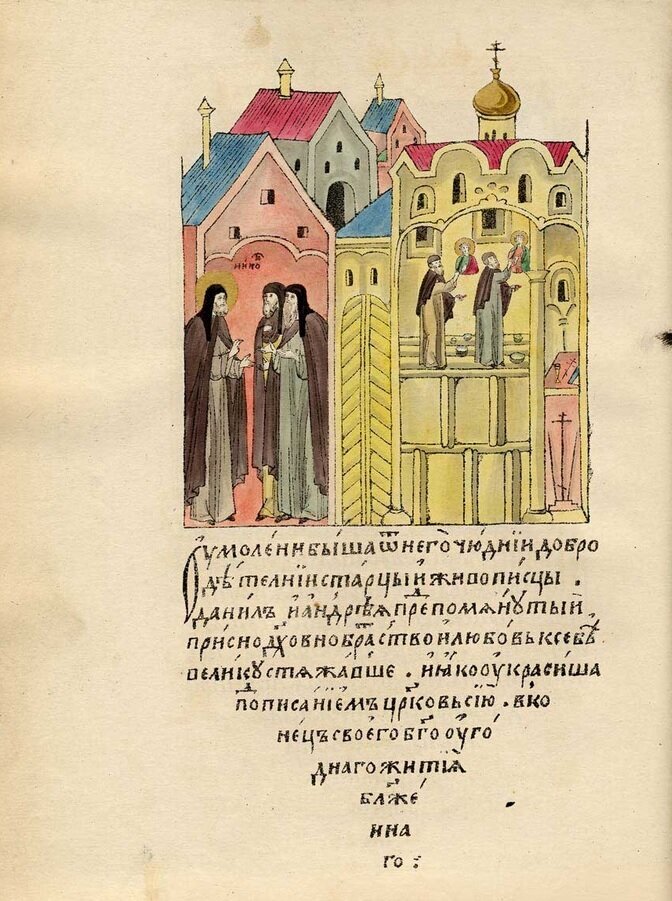 нико
Умолени быша ѿ него чюднїи добро
дѣтелнїи старцы и живописцы .
данилъ и андрѣй препомянутый
присно дх҃овно братство и любовь к себѣ
велику стяжавше . и яко украсиша
пописанїемъ цр҃ковь сїю . в ко
нецъ своего бг҃оуго
днаго житїя
блаже
нна
го :